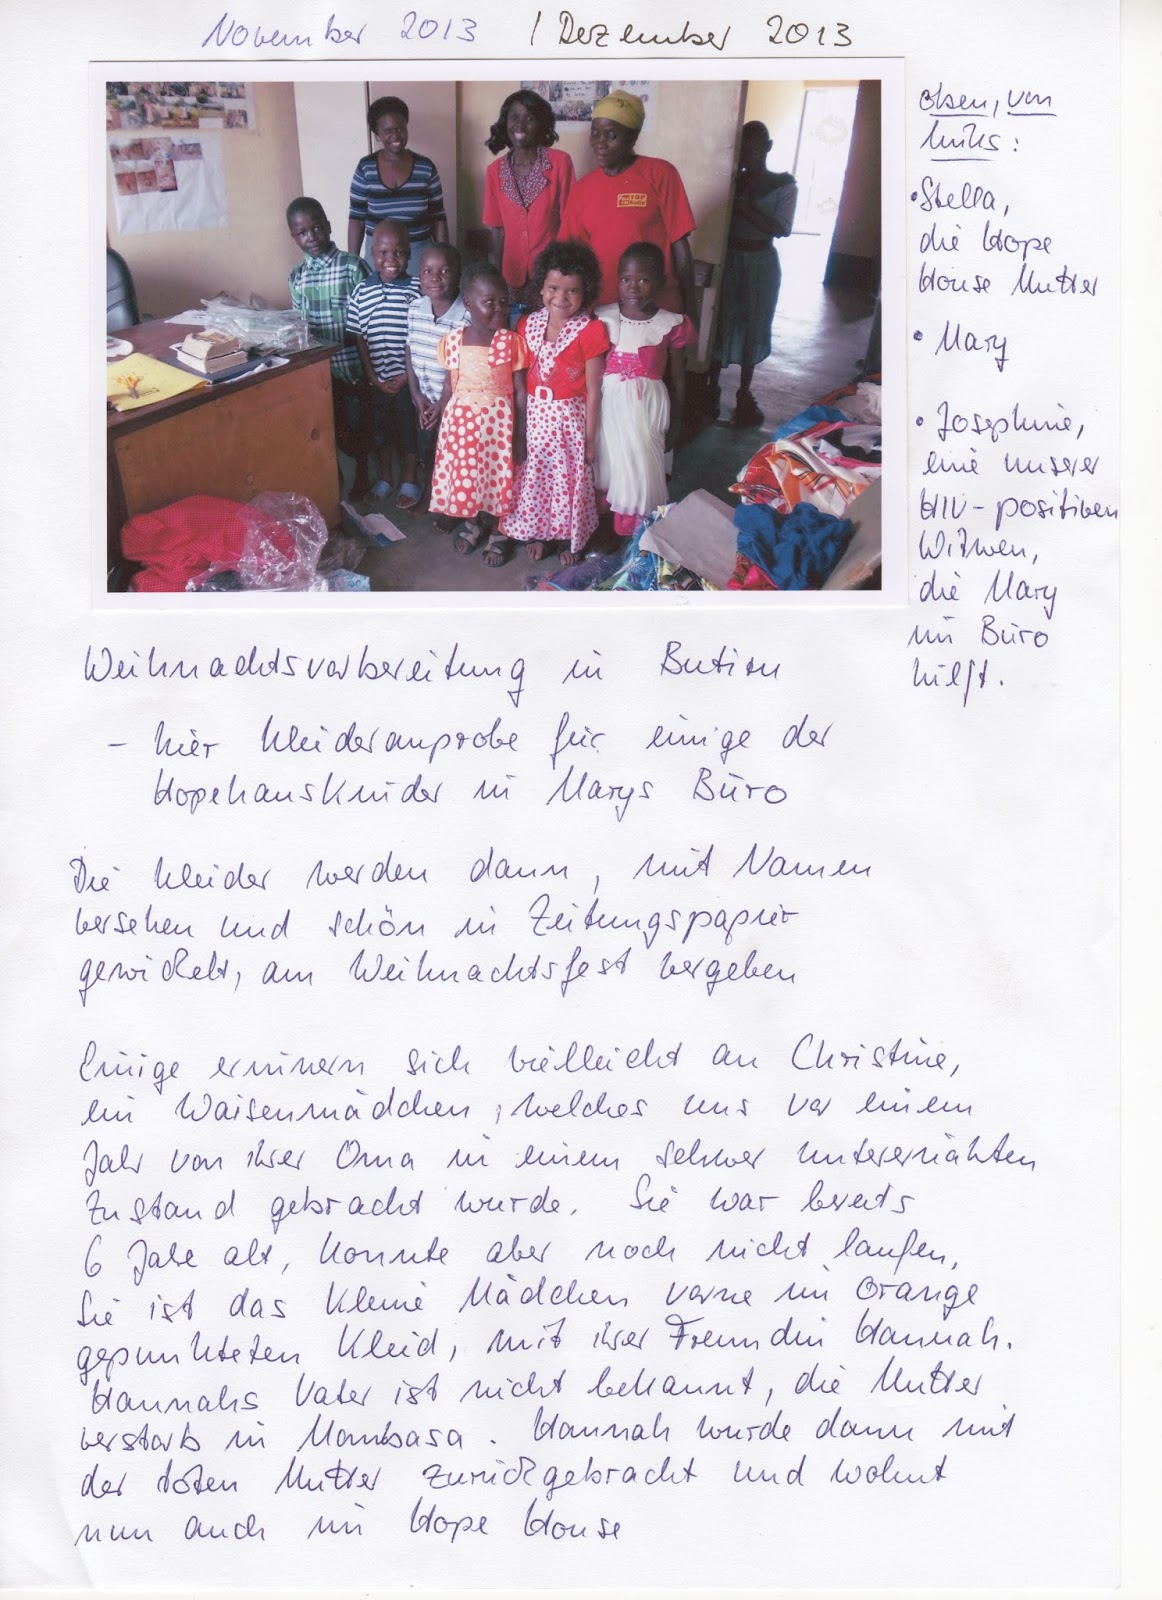 November 2013 / Dezember 2013
oben, von
links:
• Stella,
die Hope
House Mutter
• Mary
• Josephine,
eine unserer
HIV-positiven
Witwen,
die Mary
im Büro
hilft.
Weihnachtsvorbereitung in Butiru
- hier Kleideranprobe für einige der
Hopehauskinder in Marys Büro
Die Kleider werden dann, mit Namen
versehen und schön in Zeitungspapier
gewickelt, am Weihnachtsfest vergeben
Einige erinnern sich vielleicht an Christine,
ein Waisenmädchen, welches uns vor einem
Jahr von ihrer Oma in einem schwer unterernährten
Zustand gebracht wurde. Sie war bereits
6 Jahre alt, konnte aber noch nicht laufen,
Sie ist das kleine Mädchen vorne im Orange
gepunkteten Kleid, mit ihrer Freundin Hannah.
Hannahs Vater ist nicht bekannt, die Mutter
verstarb in Mombasa. Hannah wurde dann mit
der toten Mutter zurückgebracht und wohnt
nun auch im Hope House